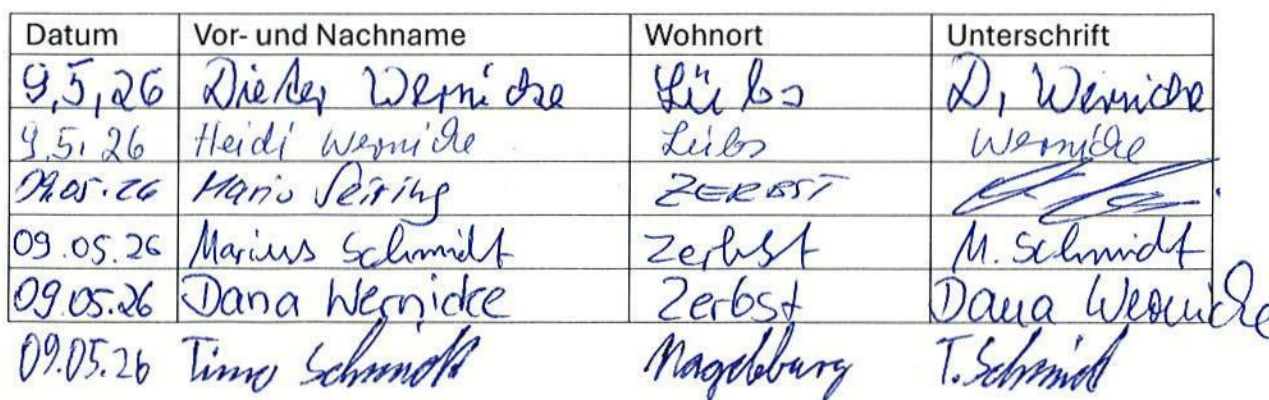 Datum Vor- und Nachname Wohnort Unterschrift
9,5,26 Dieter Wernicke Lübs D, Wernicke
9.5.26 Heidi Wernicke Lübs Wernicke
09.05.26 Mario Seiring ZERBST
09.05.26 Marius Schmidt Zerbst M. Schmidt
09.05.26 Dana Wernicke Zerbst Dana Wernicke
09.05.26 Timo Schmidt Magdeburg T. Schmidt